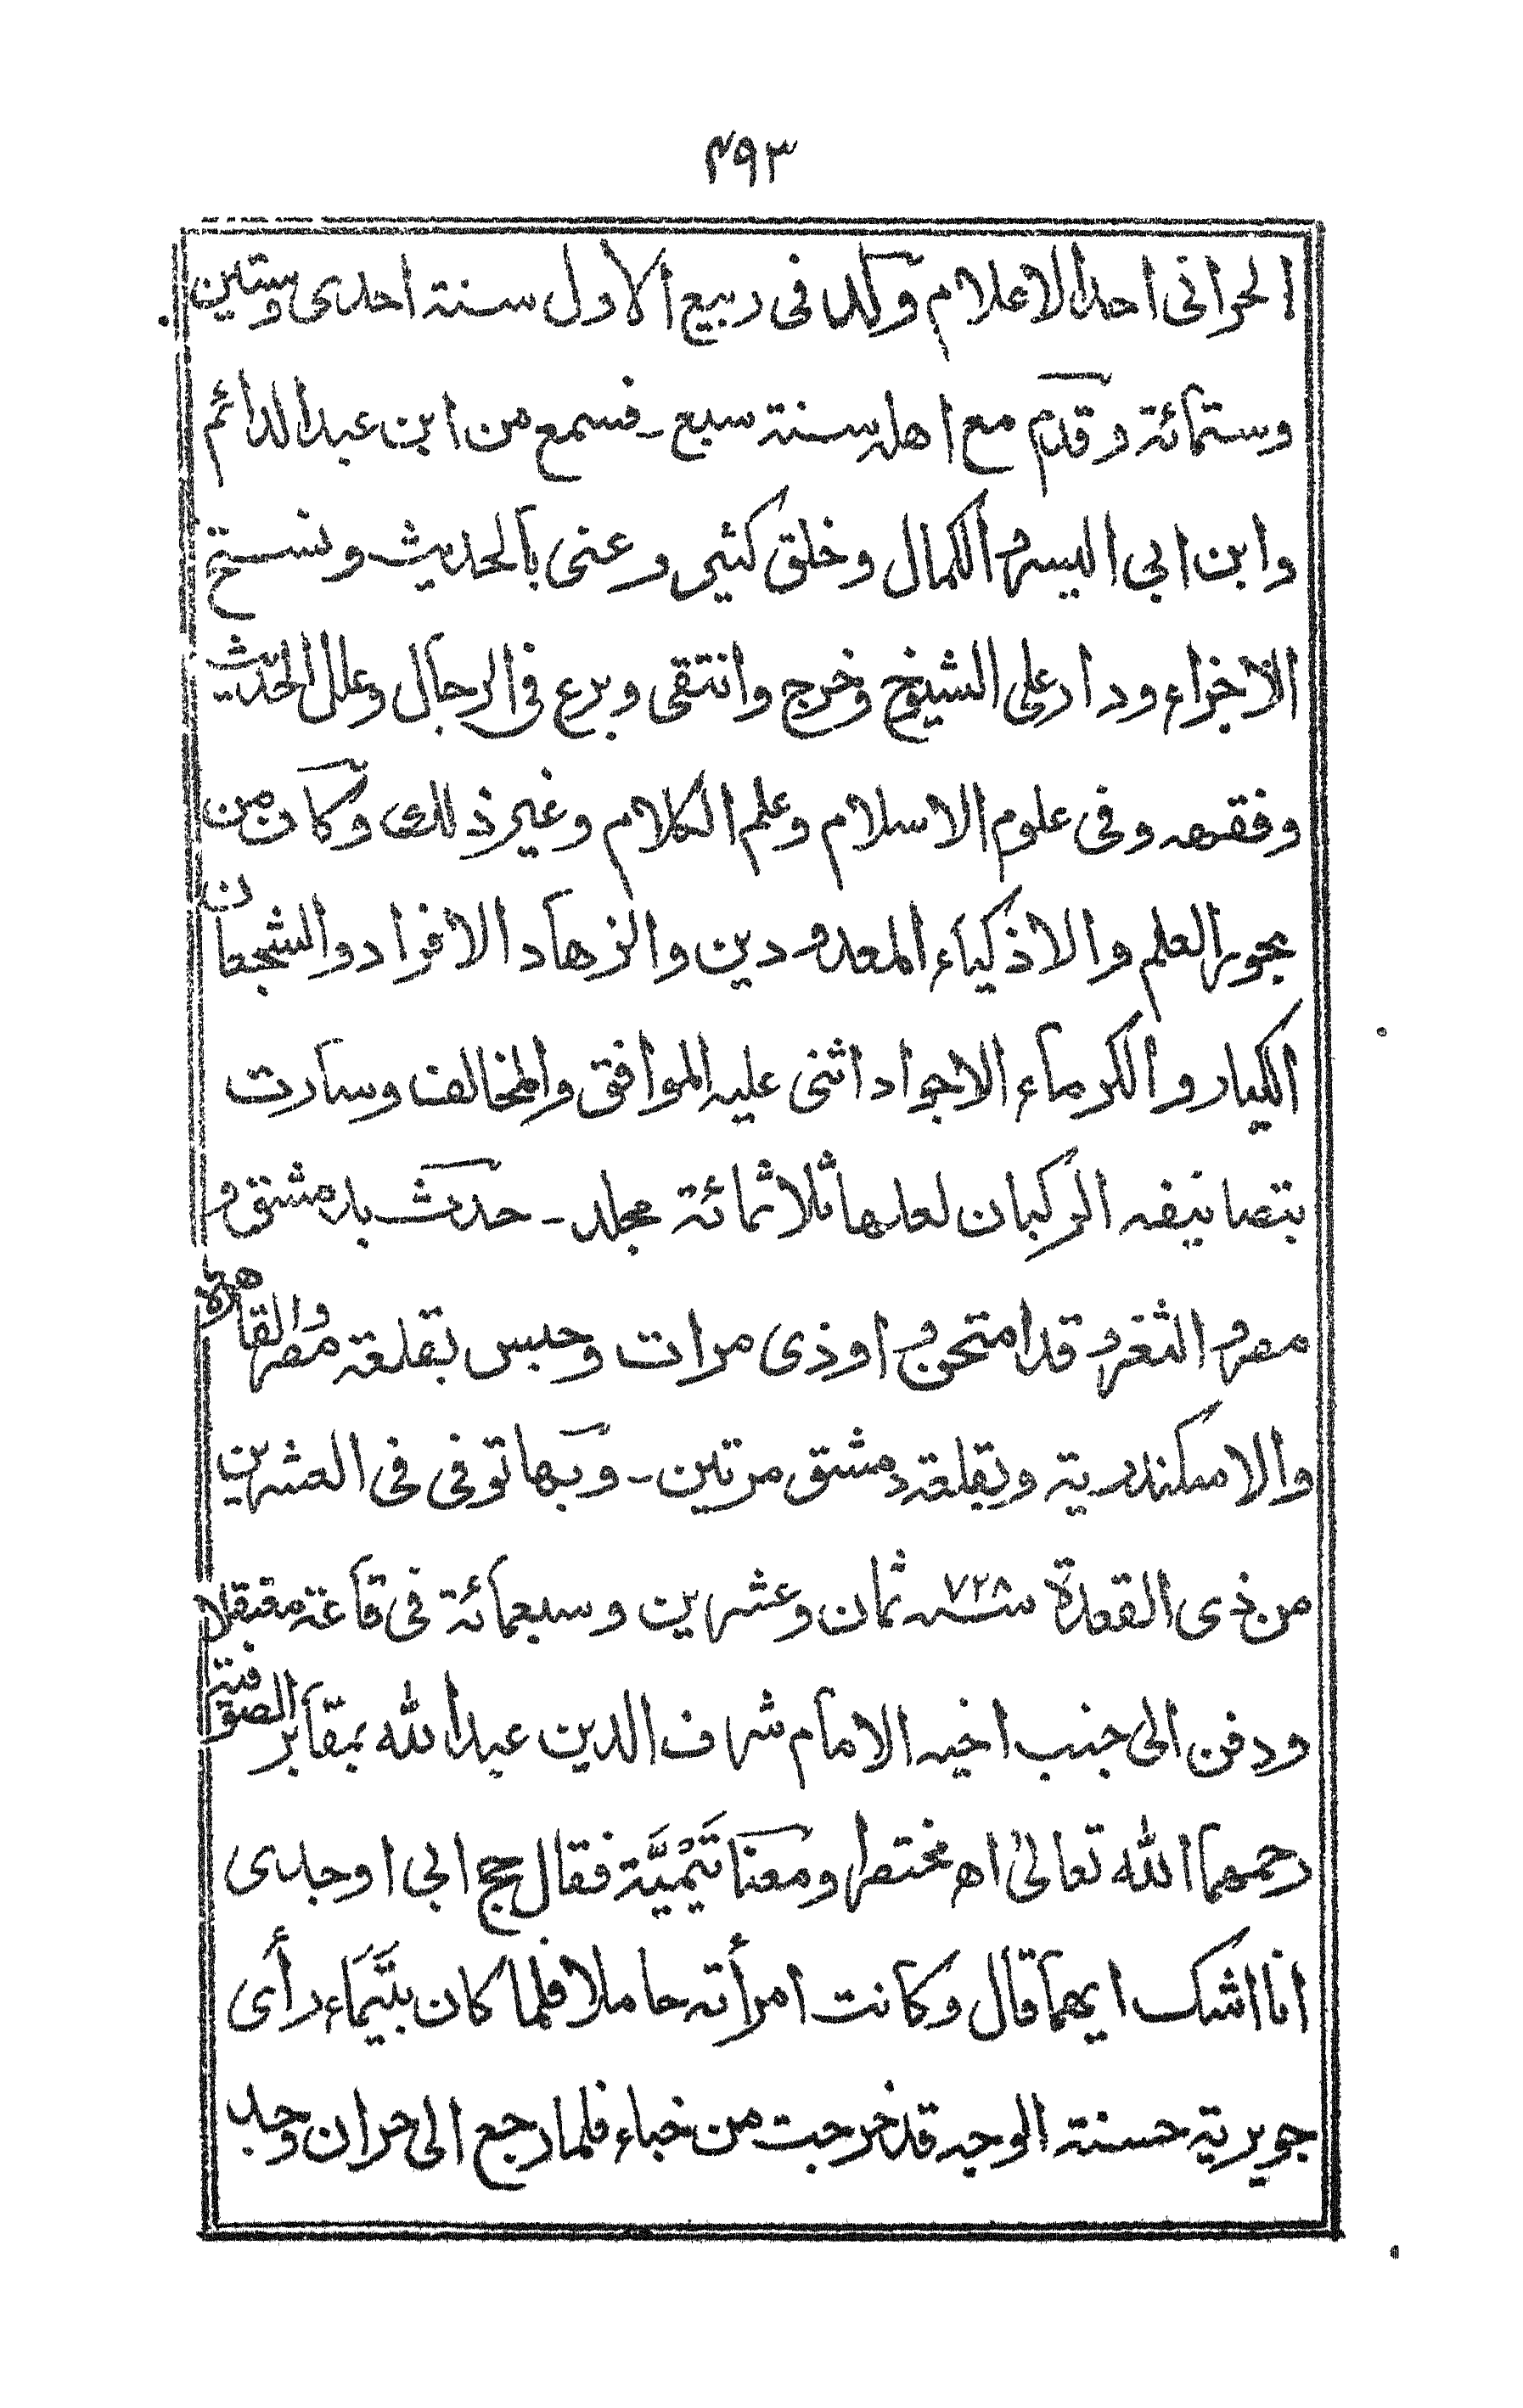 ۴۹۳
الحرانی احد الاعلام ولد فی ربیع الاول سنة احدی وستین
وستمائة وقدم مع اهله سنة سبع۔ فسمع من ابن عبد الدائم
وابن ابی الیسر والکمال وخلق کثیر وعنی بالحدیث ونسخ
الاجزاء ودار علی الشیوخ وخرج وانتقی وبرع فی الرجال وعلل الحدیث
وفقهه وفی علوم الاسلام وعلم الکلام وغیر ذلک وکان من
بحور العلم والاذکیاء المعدودین والزهاد الافراد والشجعان
الکبار والکرماء الاجواد اثنی علیه الموافق والمخالف وسارت
بتصانیفه الرکبان لعلها ثلاثمائة مجلد۔ حدث بدمشق و
مصر والثغر وقد امتحن واوذی مرات وحبس بقلعة مصر والقاهرة
والاسکندریة وبقلعة دمشق مرتین۔ وبها توفی فی العشرین
من ذی القعدة سنه ۷۲۸ ثمان وعشرین وسبعمائة فی قاعة معتقلا
ودفن الی جنب اخیه الامام شرف الدین عبد الله بمقابر الصوفیة
رحمهما الله تعالیٰ اه مختصرا ومعنا تَیْمِیَّة فقال حج ابی اوجدی
انا اشک ایهما قال وکانت امرأته حاملا فلما کان بتَیَماء رأی
جویریة حسنة الوجه قد خرجت من خباء فلما رجع الی حران وجد